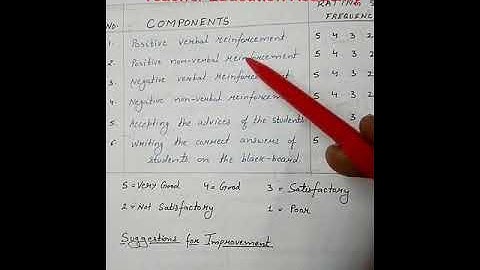 RATING
NO. COMPONENTS FREQUENC
1. Positive verbal reinforcement 5 4 3 2
2. Positive non-verbal reinforcement 5 4 3 2
3. Negative verbal reinforcement 5 4 3 2
4. Negative non-verbal reinforcement 5 4 3 2
5. Accepting the advices of the students 3 2
6. Writing the correct answers of 5
students on the black-board
5 = Very Good 4 = Good 3 = Satisfactory
2 = Not Satisfactory 1 = Poor
Suggestions for Improvement